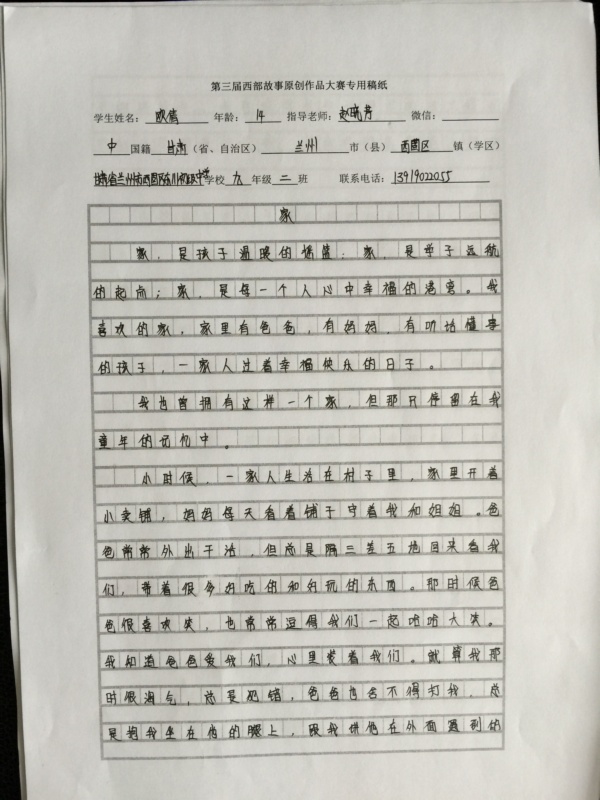 第三届西部故事原创作品大赛专用稿纸
学生姓名： 欧倩 年龄： 14 指导老师： 赵晓芳 微信：
中 国籍 甘肃（省、自治区） 兰州 市（县） 西固区 镇（学区）
甘肃省兰州市西固区东川初级中学 学校 九 年级 二 班 联系电话： 13919022055
家
家，是孩子温暖的摇篮；家，是学子远航
的起点；家，是每一个人心中幸福的港湾。我
喜欢的家，家里有爸爸，有妈妈，有听话懂事
的孩子，一家人过着幸福快乐的日子。
我也曾拥有这样一个家，但那只停留在我
童年的记忆中。
小时候，一家人生活在村子里，家里开着
小卖铺，妈妈每天看着铺子守着我和姐姐。爸
爸常常外出干活，但总是隔三差五地回来看我
们，带着很多好吃的和好玩的东西。那时候爸
爸很喜欢笑，也常常逗得我们一起哈哈大笑。
我知道爸爸爱我们，心里装着我们。就算我那
时很淘气，总是犯错，爸爸也舍不得打我，总
是抱我坐在他的腿上，跟我讲他在外面遇到的